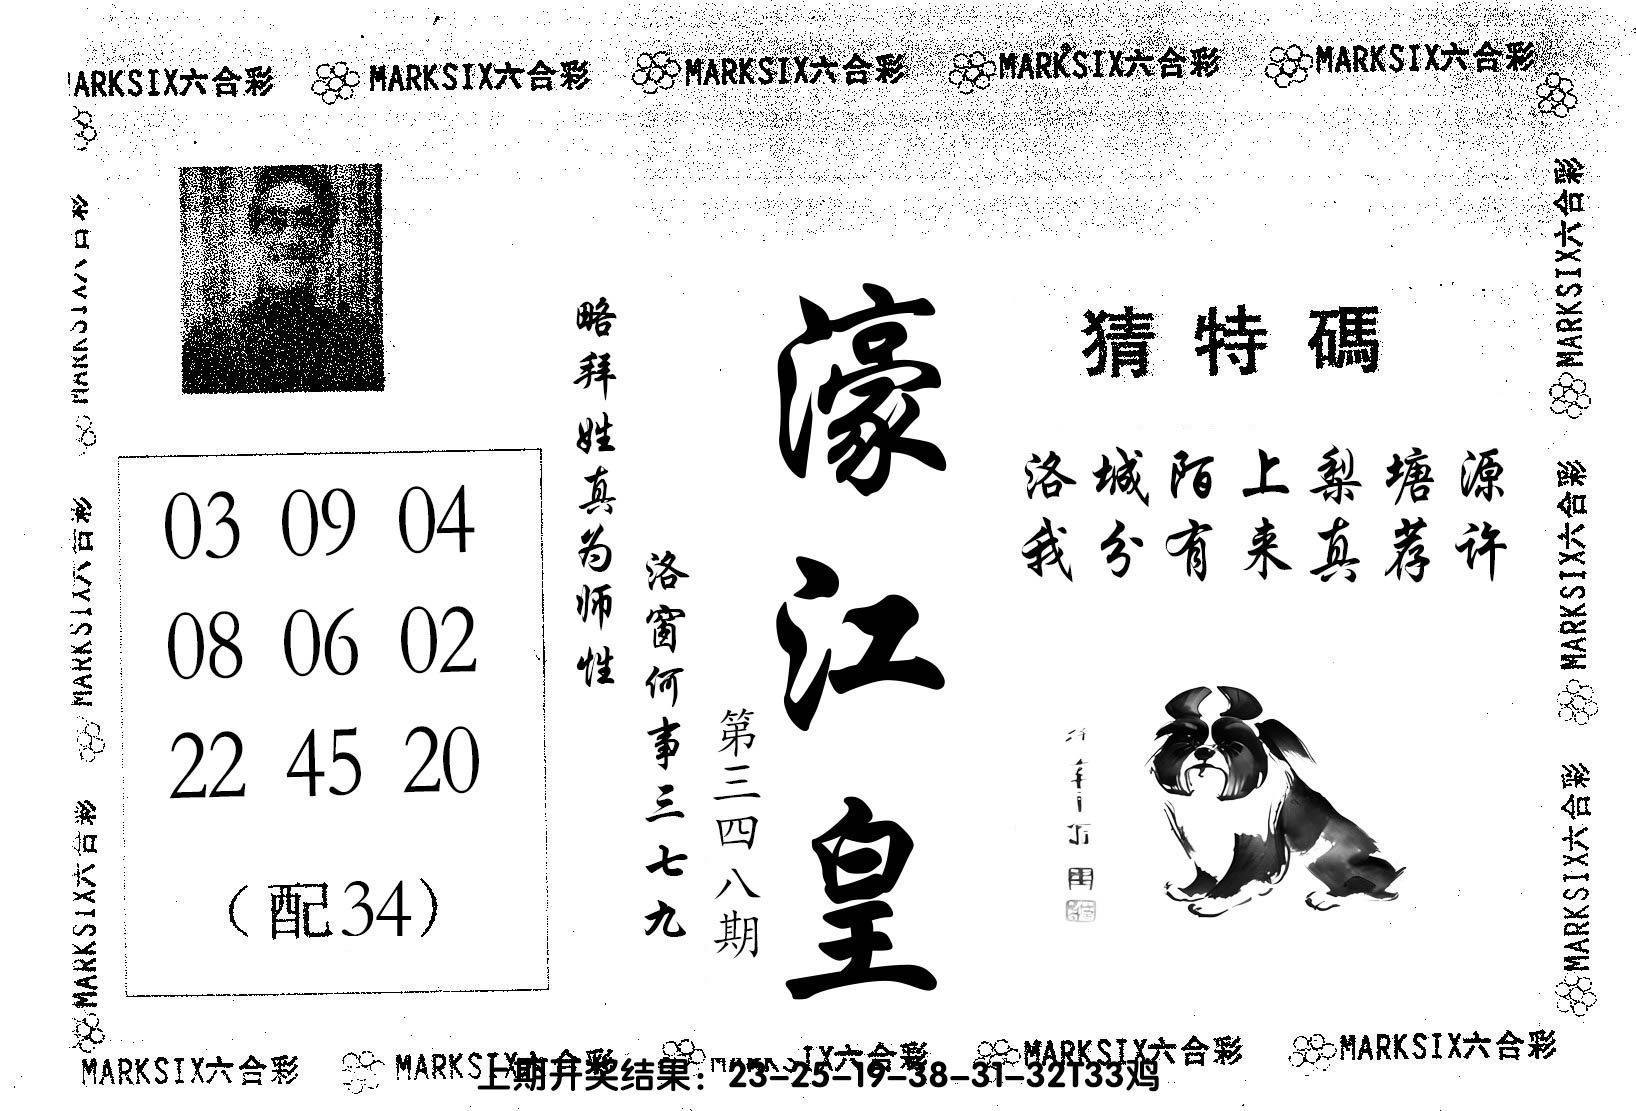 MARKSIX六合彩 MARKSIX六合彩 MARKSIX六合彩 MARKSIX六合彩 MARKSIX六合彩
猜特碼
洛城陌上梨塘源
我分有来真荐许
濠江皇
第三四八期
洛窗何事三七九
略拜姓真为师性
03 09 04
08 06 02
22 45 20
（配34）
MARKSIX六合彩
MARKSIX六合彩
MARKSIX六合彩
MARKSIX六合彩
MARKSIX六合彩
MARKSIX六合彩
MARKSIX六合彩 MARKSIX六合彩 MARKSIX六合彩 MARKSIX六合彩 MARKSIX六合彩
上期开奖结果：23-25-19-38-31-32T33鸡